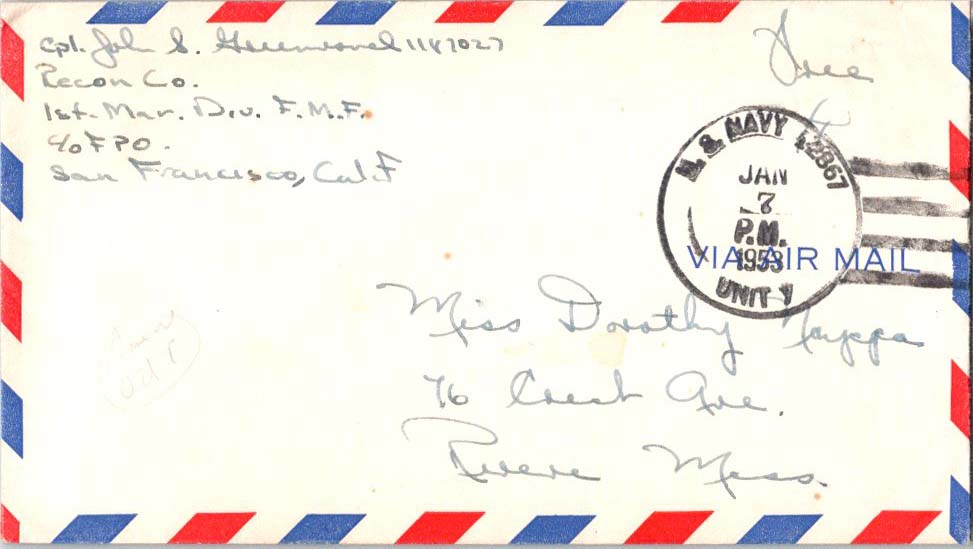 Cpl. John S. 1187027
Recon Co.
1st. Mar. Div. F.M.F.
c/o FPO.
San Francisco, Calif
Free
N. & NAVY 12867
JAN
7
P.M.
1953
UNIT 1
VIA AIR MAIL
Miss Dorothy
76 Crest Ave.
Revere Mass.